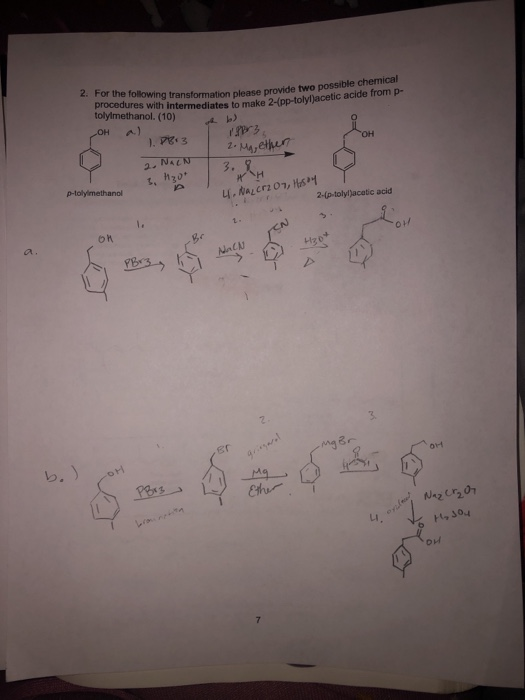 2. For the following transformation please provide two possible chemical
procedures with intermediates to make 2-(pp-tolyl)acetic acide from p-
tolylmethanol. (10)
OH a) b) O
1. PBr3 1. PBr3 OH
2. Mg, ether
2. NaCN 3. O
3. H3O+ H H
Δ 4. Na2Cr2O7, H2SO4
p-tolylmethanol 2-(p-tolyl)acetic acid
1. 2. 3.
a. OH PBr3 Br NaCN CN H3O+ O OH
Δ
2. 3.
b.) OH PBr3 Br Mg MgBr OH
Ether
Na2Cr2O7
4. H2SO4
O
OH
7